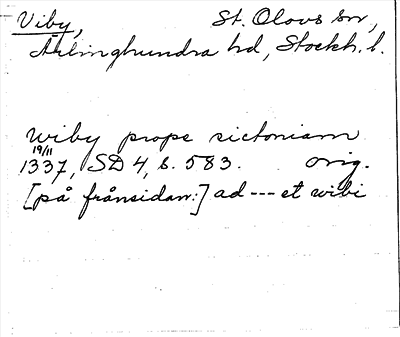 Viby, St. Olovs sn,
Ärlinghundra hd, Stockh. l.
wiby prope sictoniam
19/11
1337, SD 4, s. 583. orig.
[på frånsidan:] ad --- et wibi